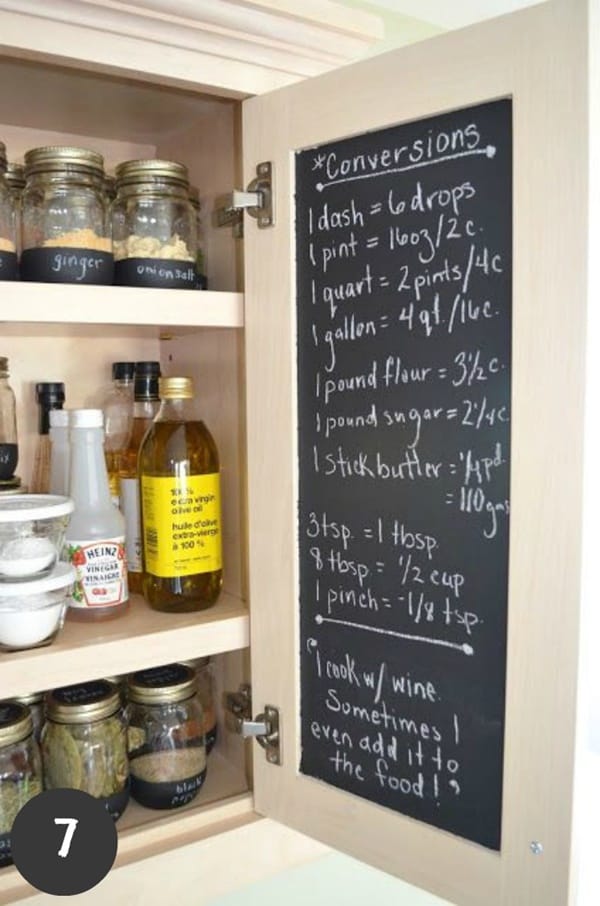 *Conversions
1 dash = 6 drops
1 pint = 16oz/2c.
1 quart = 2 pints/4c
1 gallon = 4 qt./16c.
1 pound flour = 3½ c.
1 pound sugar = 2¼ c.
1 stick butter = ¼ pd.
= 110 gms
3 tsp. = 1 tbsp.
8 tbsp. = ½ cup
1 pinch = -1/8 tsp.
"I cook w/ wine.
Sometimes I
even add it to
the food!"
ginger
onion salt
100%
extra virgin
olive oil
huile d'olive
extra-vierge
à 100 %
HEINZ
VINEGAR
VINAIGRE
black
pepper
7